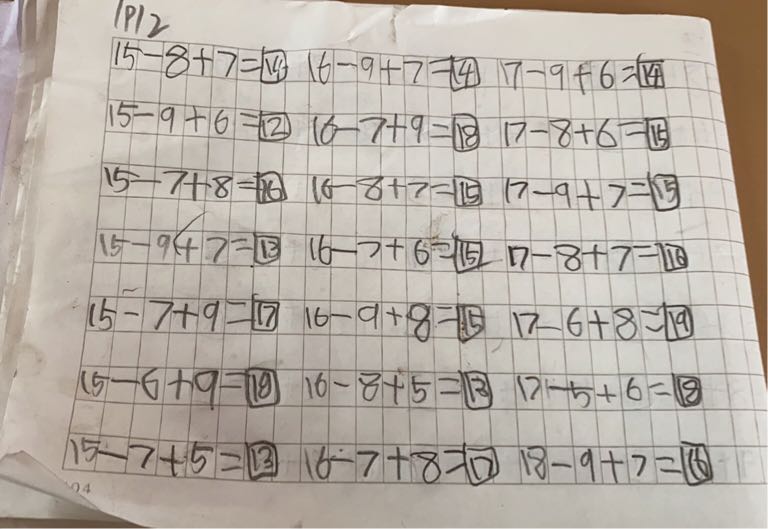 P12
15-8+7=14 16-9+7=14 17-9+6=14
15-9+6=12 16-7+9=18 17-8+6=15
15-7+8=16 16-8+7=15 17-9+7=15
15-9+7=13 16-7+6=15 17-8+7=16
15-7+9=17 16-9+8=15 17-6+8=19
15-6+9=18 16-8+5=13 17-5+6=18
15-7+5=13 16-7+8=17 18-9+7=16